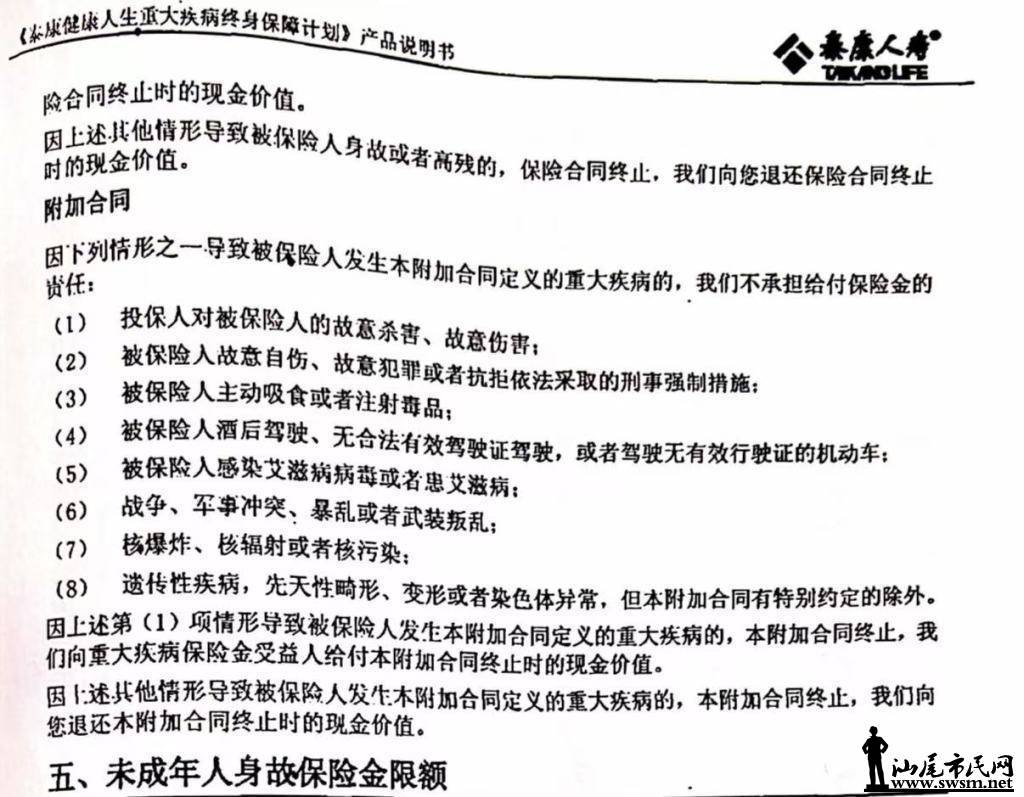 《泰康健康人生重大疾病终身保障计划》产品说明书
泰康人寿
TAIKANG LIFE
险合同终止时的现金价值。
因上述其他情形导致被保险人身故或者高残的，保险合同终止，我们向您退还保险合同终止
时的现金价值。
附加合同
因下列情形之一导致被保险人发生本附加合同定义的重大疾病的，我们不承担给付保险金的
责任：
（1） 投保人对被保险人的故意杀害、故意伤害；
（2） 被保险人故意自伤、故意犯罪或者抗拒依法采取的刑事强制措施；
（3） 被保险人主动吸食或者注射毒品；
（4） 被保险人酒后驾驶、无合法有效驾驶证驾驶，或者驾驶无有效行驶证的机动车；
（5） 被保险人感染艾滋病病毒或者患艾滋病；
（6） 战争、军事冲突、暴乱或者武装叛乱；
（7） 核爆炸、核辐射或者核污染；
（8） 遗传性疾病，先天性畸形、变形或者染色体异常，但本附加合同有特别约定的除外。
因上述第（1）项情形导致被保险人发生本附加合同定义的重大疾病的，本附加合同终止，我
们向重大疾病保险金受益人给付本附加合同终止时的现金价值。
因上述其他情形导致被保险人发生本附加合同定义的重大疾病的，本附加合同终止，我们向
您退还本附加合同终止时的现金价值。
五、未成年人身故保险金限额
汕尾市民网
www.swsm.net